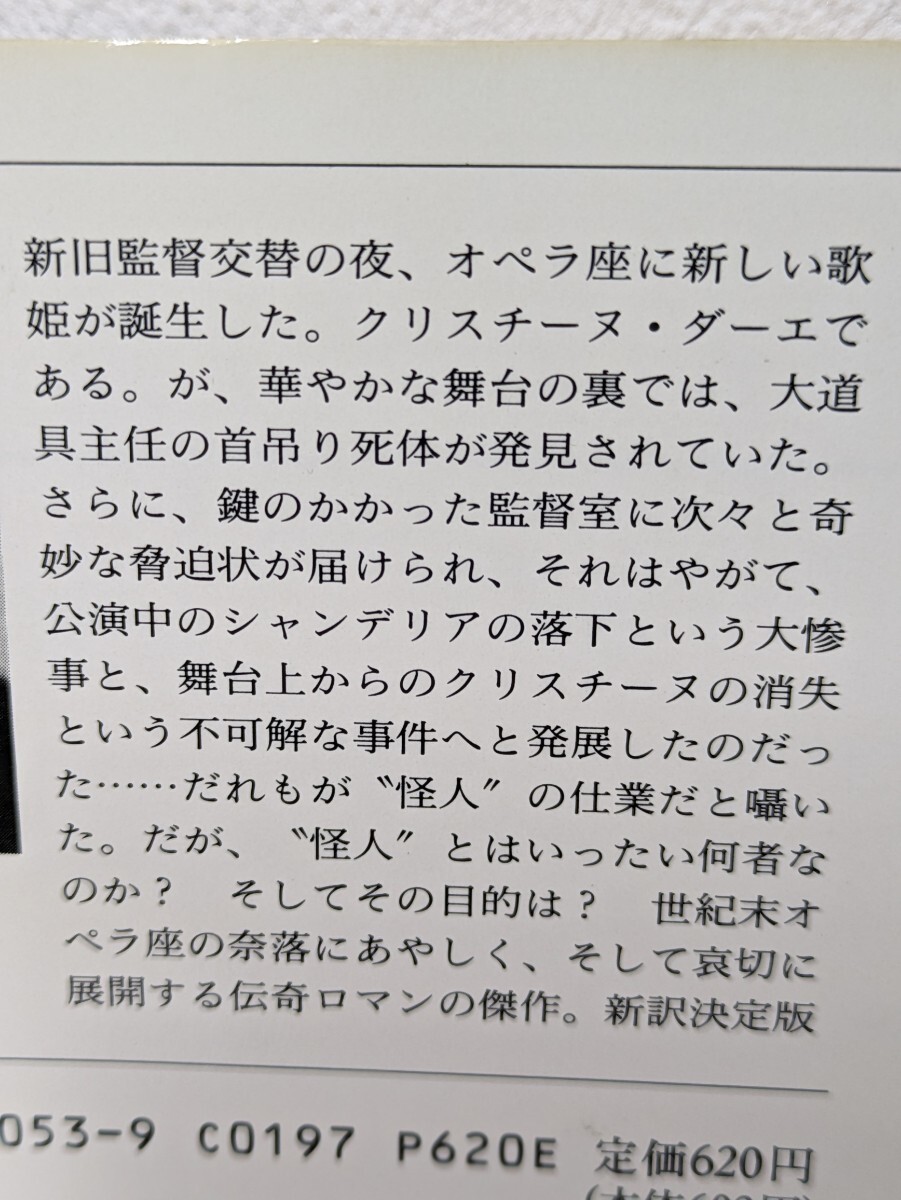 新旧監督交替の夜、オペラ座に新しい歌
姫が誕生した。クリスチーヌ・ダーエで
ある。が、華やかな舞台の裏では、大道
具主任の首吊り死体が発見されていた。
さらに、鍵のかかった監督室に次々と奇
妙な脅迫状が届けられ、それはやがて、
公演中のシャンデリアの落下という大惨
事と、舞台上からのクリスチーヌの消失
という不可解な事件へと発展したのだっ
た……だれもが〝怪人〟の仕業だと囁い
た。だが、〝怪人〟とはいったい何者な
のか？　そしてその目的は？　世紀末オ
ペラ座の奈落にあやしく、そして哀切に
展開する伝奇ロマンの傑作。新訳決定版
053-9 C0197 P620E 定価620円